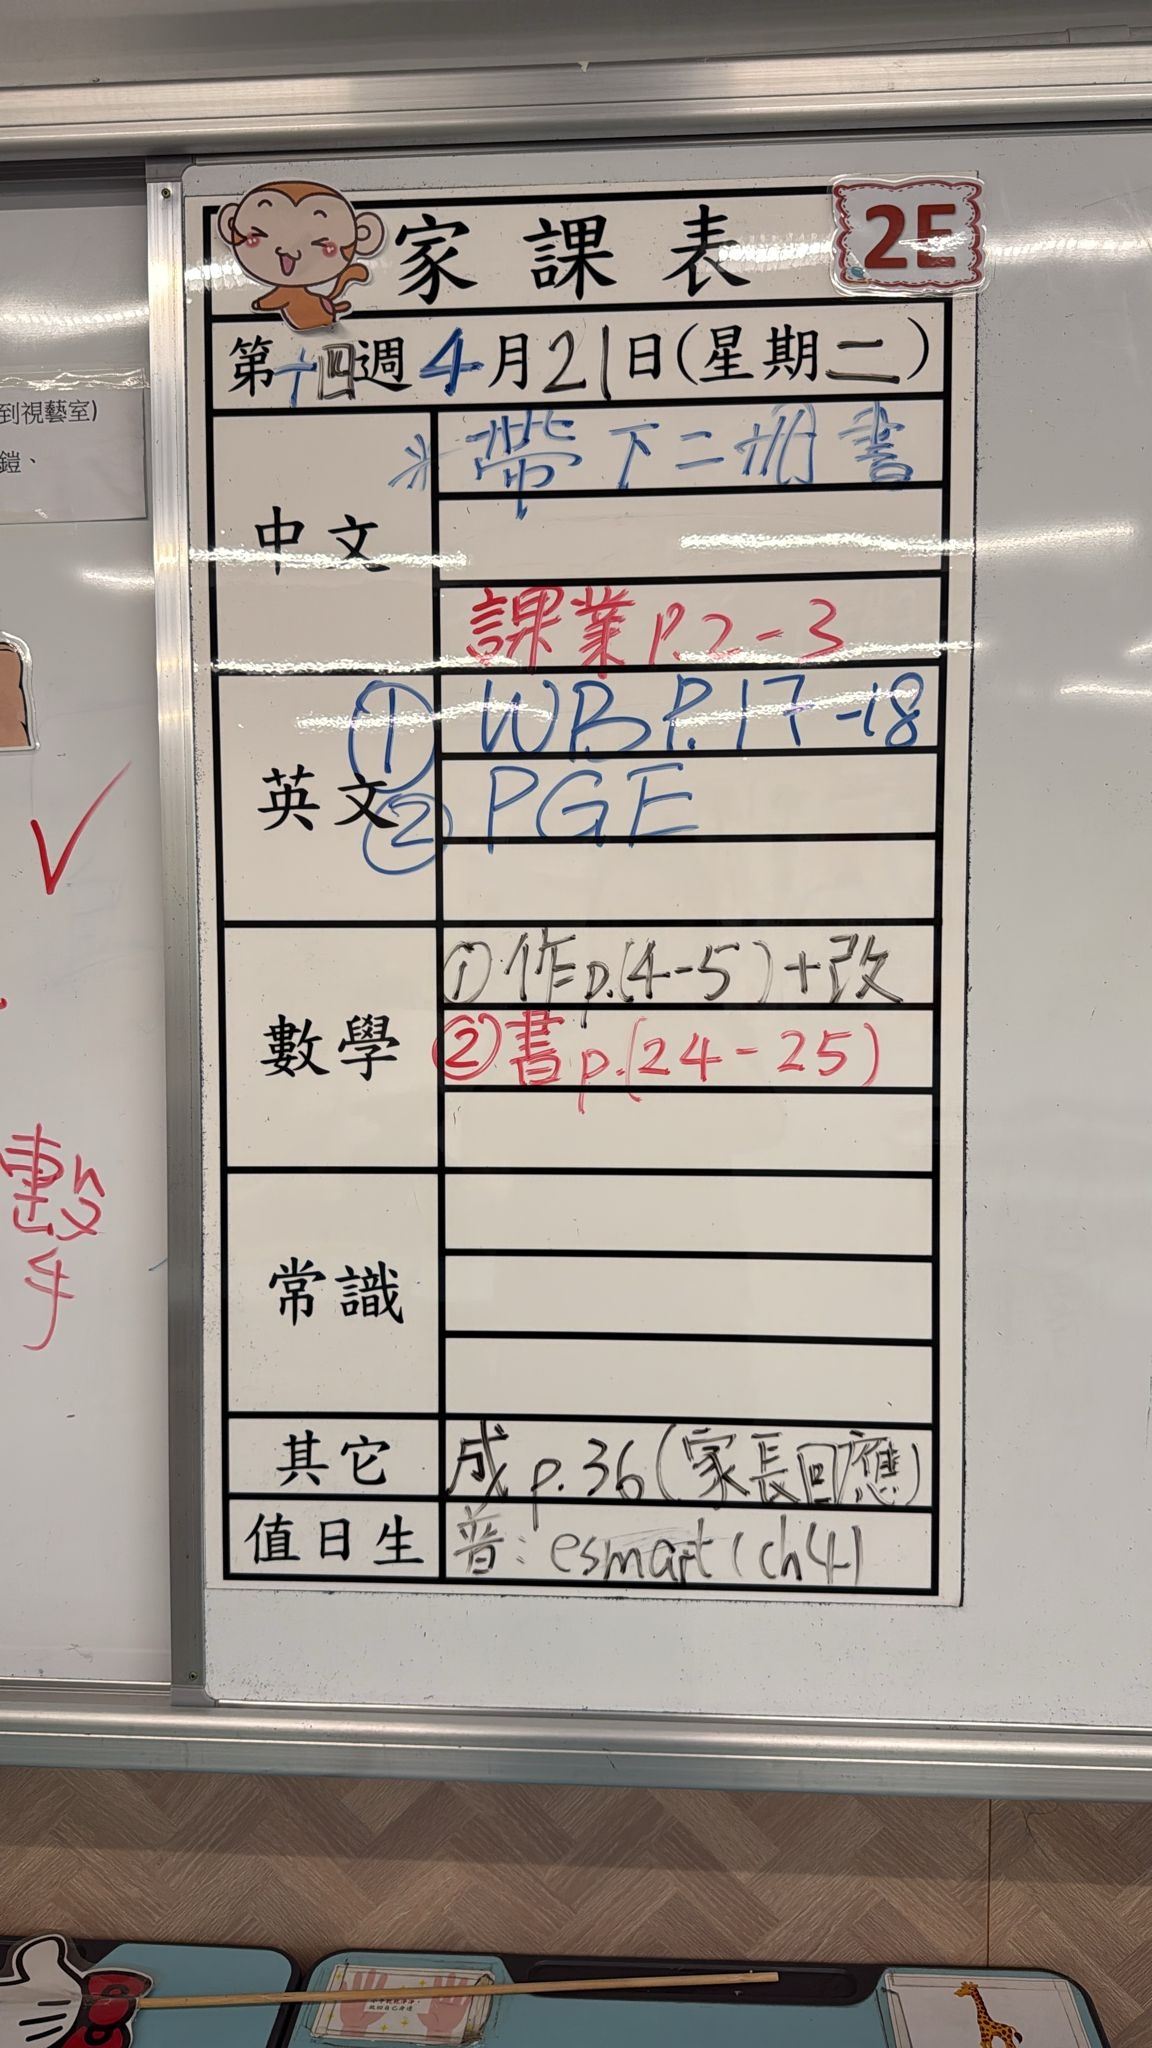 家課表
2E
第十四週4月21日(星期二)
到視藝室)
鎧、
中文
※帶下二冊書
課業P.2-3
英文
① W.B.P.17-18
② PGE
數學
①作p.(4-5)+改
②書p.(24-25)
手
常識
其它
成p.36(家長回應)
值日生
普:esmart(ch4)